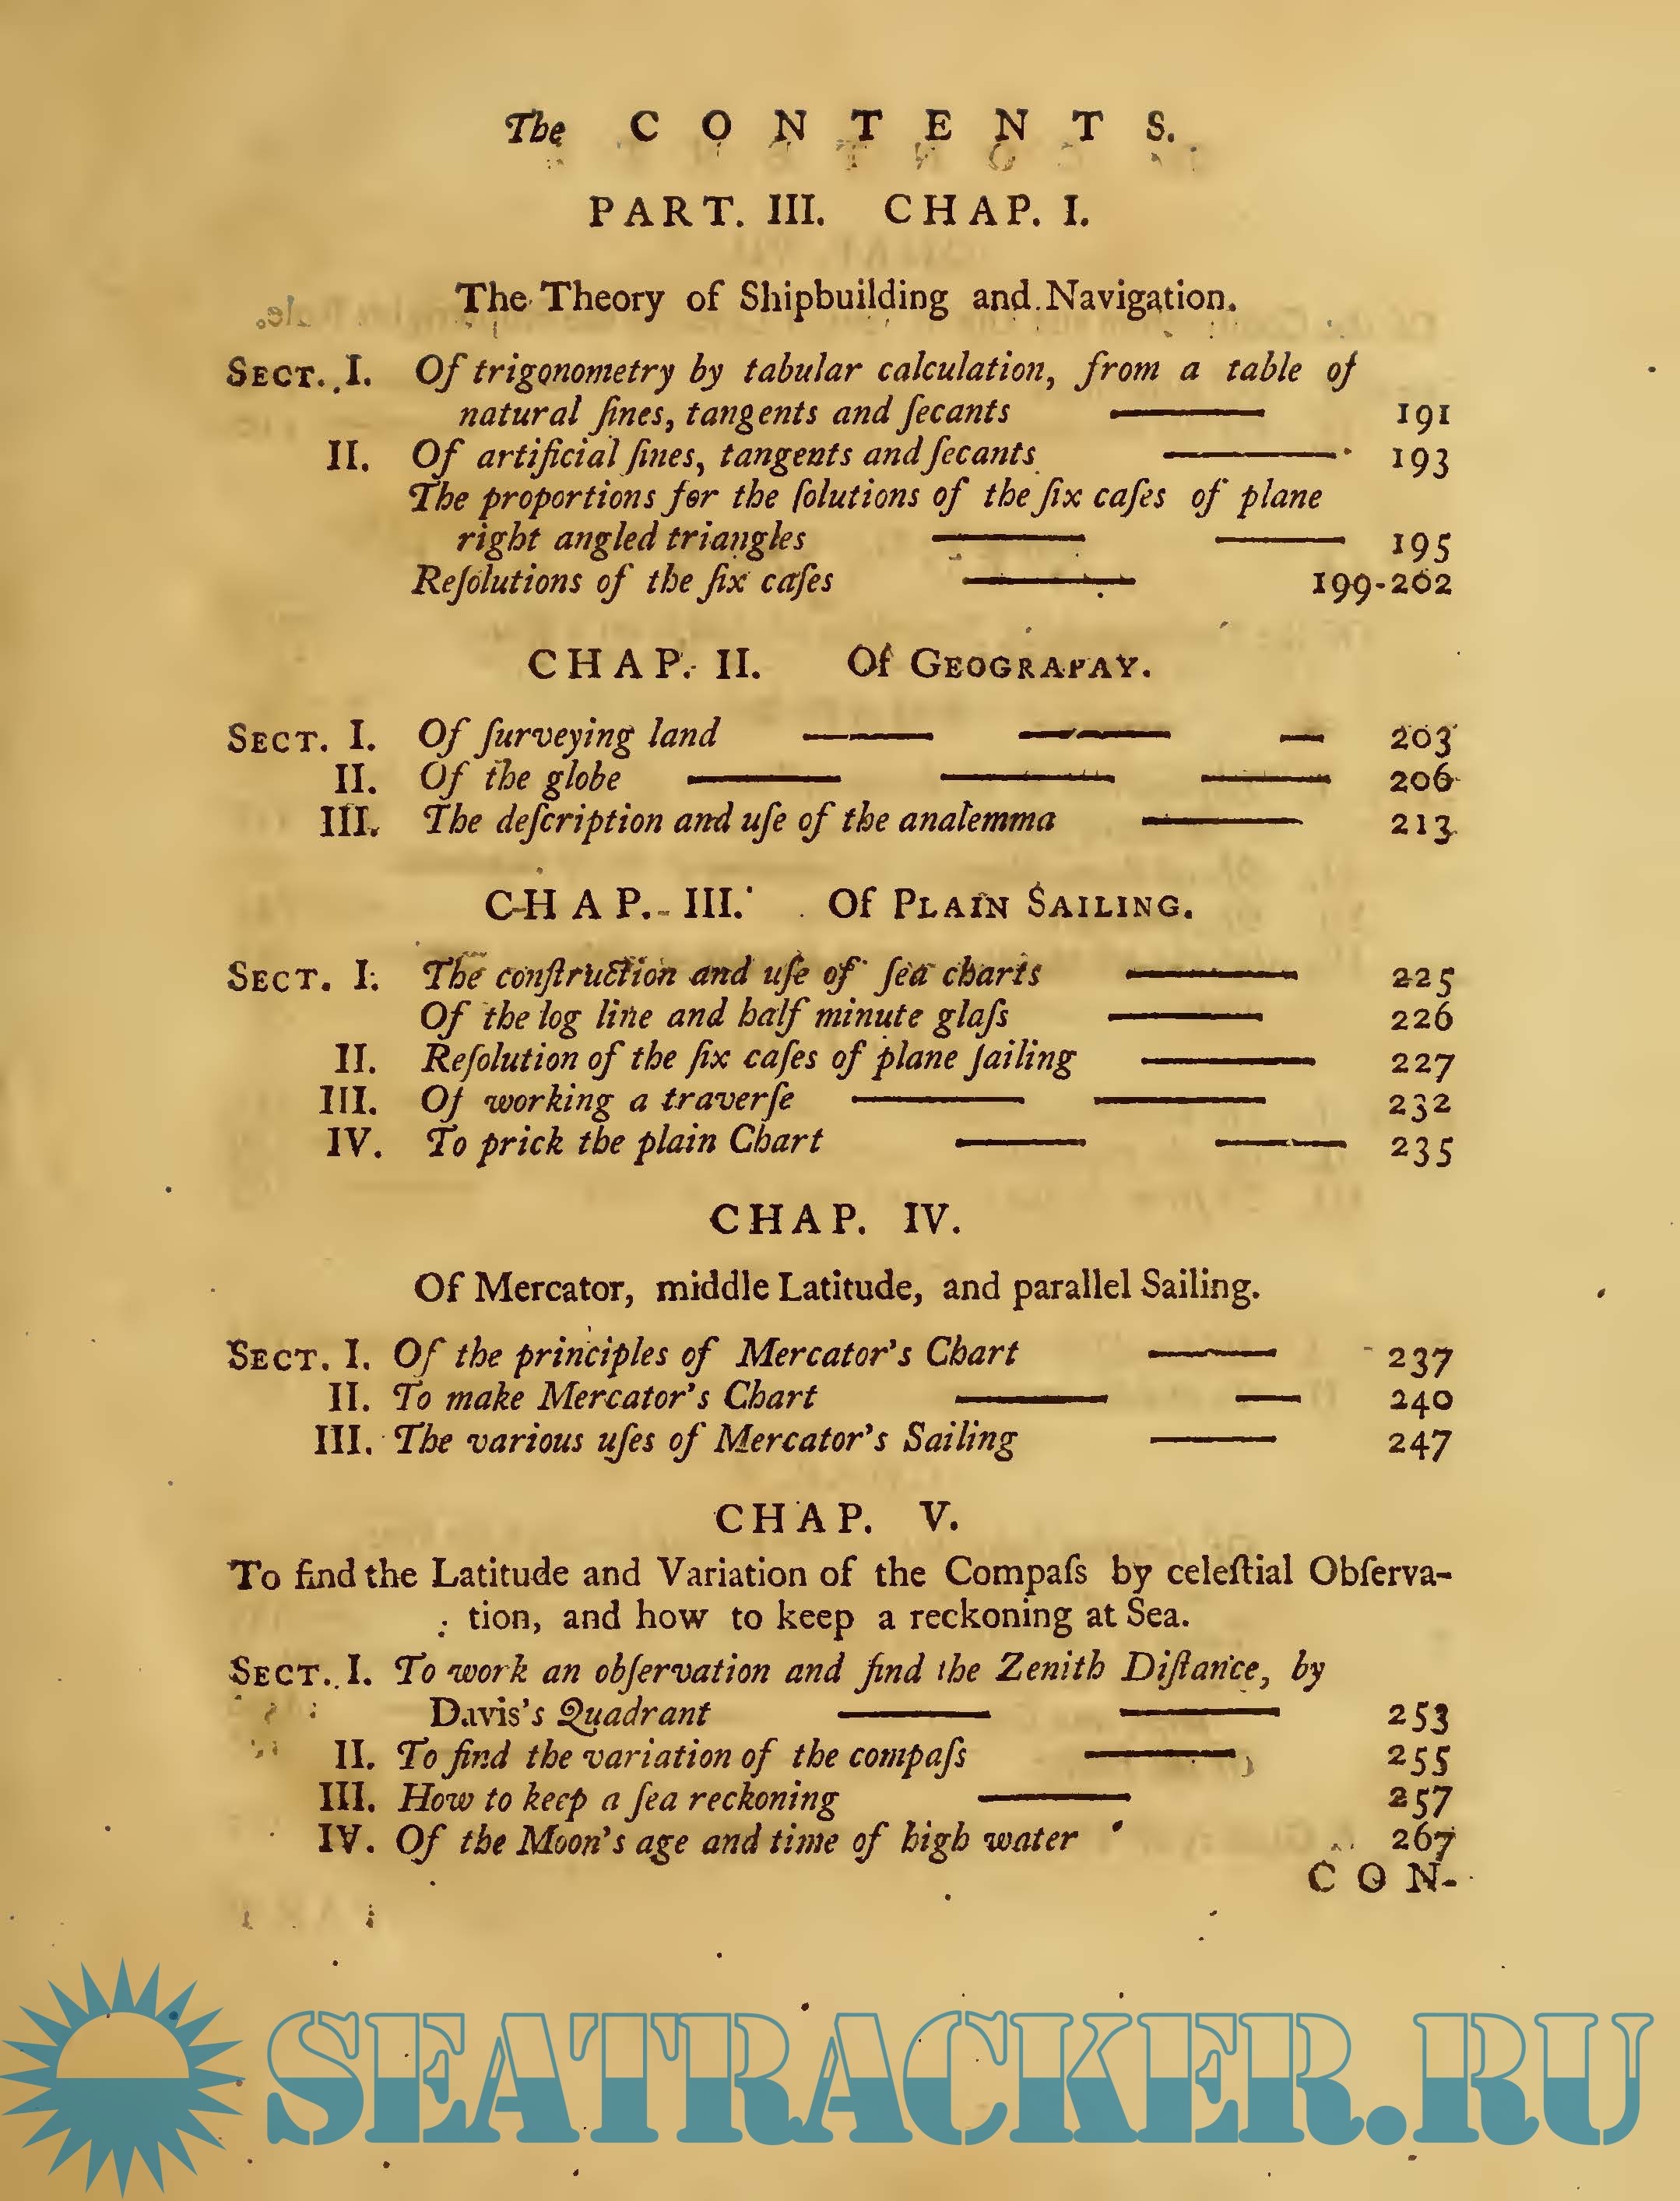 The CONTENTS.
PART. III. CHAP. I.
The Theory of Shipbuilding and Navigation.
SECT. I. Of trigonometry by tabular calculation, from a table of
natural ſines, tangents and ſecants 191
II. Of artificial ſines, tangents and ſecants 193
The proportions for the ſolutions of the ſix caſes of plane
right angled triangles 195
Reſolutions of the ſix caſes 199-202
CHAP. II. Of GEOGRAPAY.
SECT. I. Of ſurveying land 203
II. Of the globe 206
III. The deſcription and uſe of the analemma 213
CHAP. III. Of PLAIN SAILING.
SECT. I. The conſtruction and uſe of ſea charts 225
Of the log line and half minute glaſs 226
II. Reſolution of the ſix caſes of plane ſailing 227
III. Of working a traverſe 232
IV. To prick the plain Chart 235
CHAP. IV.
Of Mercator, middle Latitude, and parallel Sailing.
SECT. I. Of the principles of Mercator's Chart 237
II. To make Mercator's Chart 240
III. The various uſes of Mercator's Sailing 247
CHAP. V.
To find the Latitude and Variation of the Compaſs by celeſtial Obſerva-
tion, and how to keep a reckoning at Sea.
SECT. I. To work an obſervation and find the Zenith Diſtance, by
Davis's Quadrant 253
II. To find the variation of the compaſs 255
III. How to keep a ſea reckoning 257
IV. Of the Moon's age and time of high water 267
CON-
SEATRACKER.RU